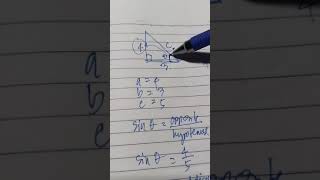 4
c
a = 4
b = 3
c = 5
sin θ = opposite/hypotenuse
sin θ = 4/5